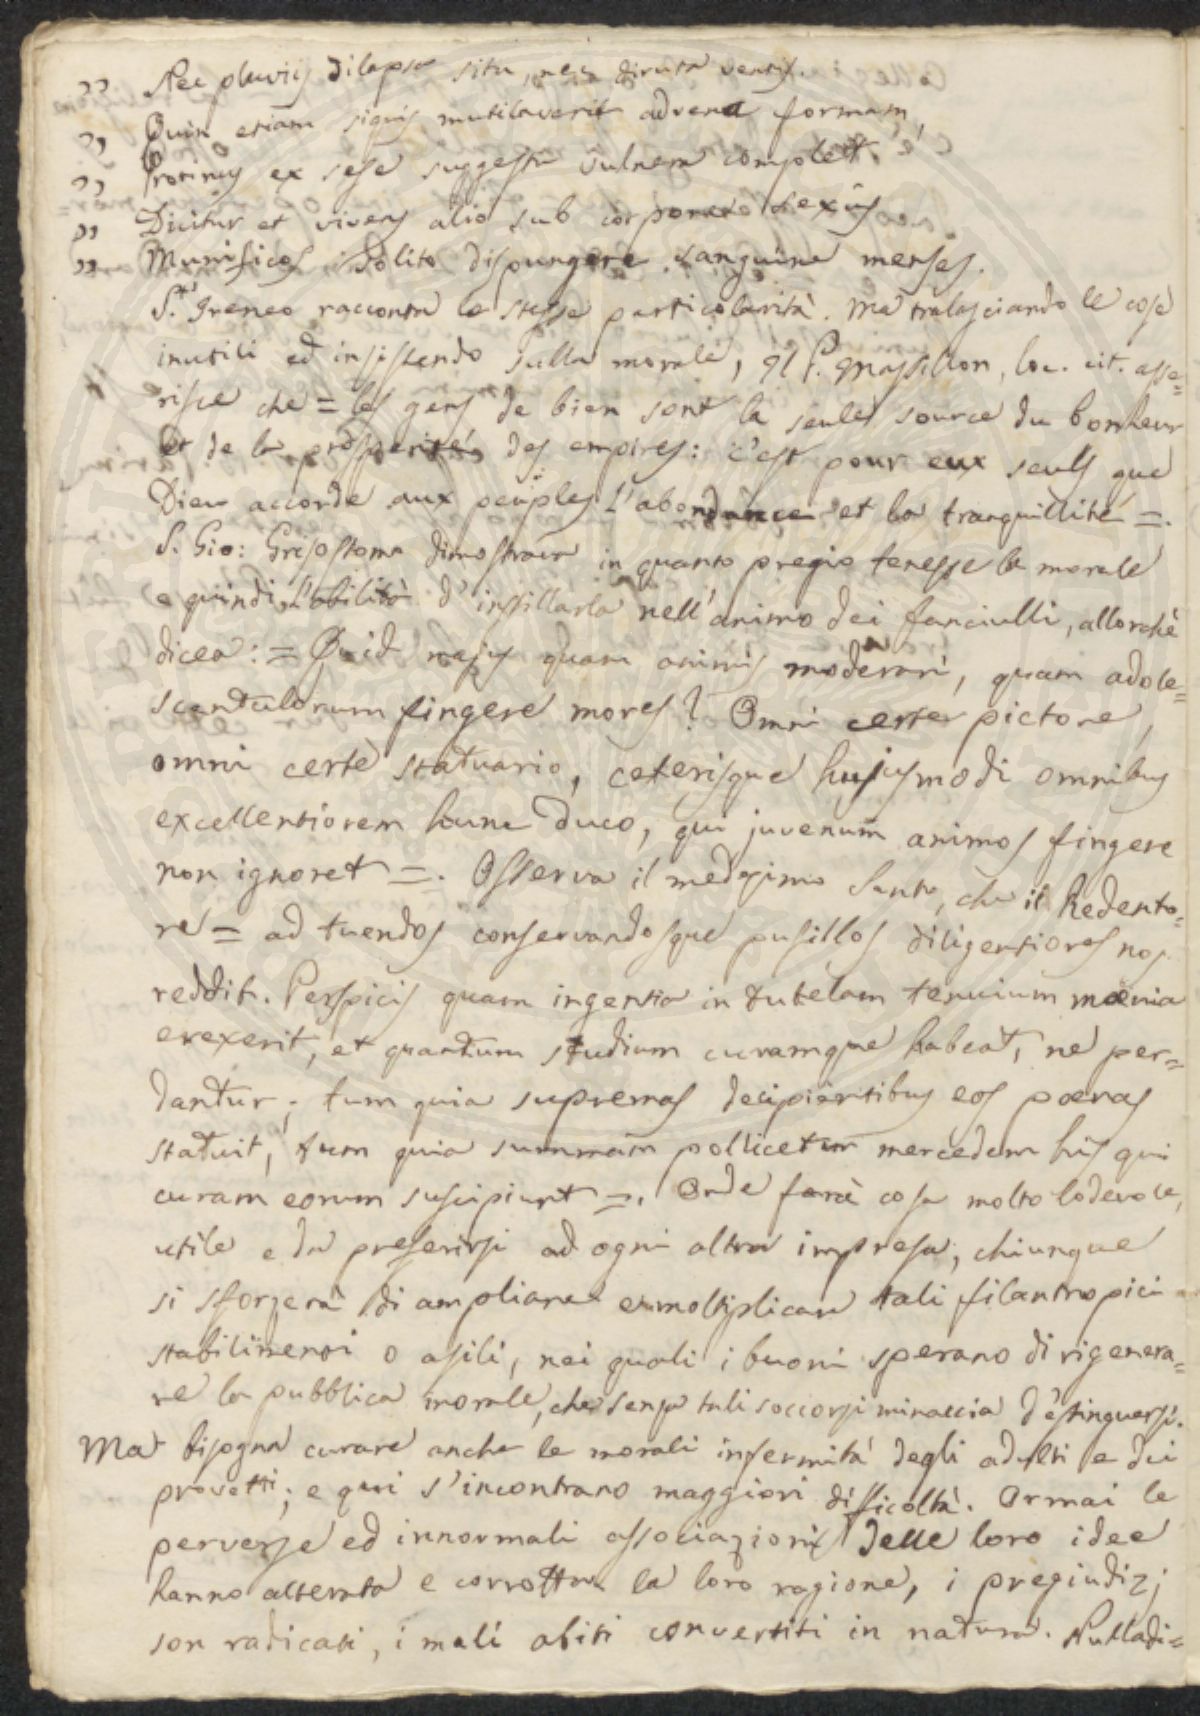 " Nec pluviis dilapsa situ, nec diruta ventis.
" Quin etiam siquis mutilaverit advena formam,
" Protinus ex sese suggesta vulnera complet.
" Dicitur et vivens alio sub corpore sexus
" Munificos solito dispungere sanguine menses.
S.t Ireneo racconta le stesse particolarità. Ma tralasciando le cose
inutili ed insistendo sulla morale, il P. Massillon, loc. cit. asse=
risce che = les gens de bien sont la seule source du bonheur
et de la prosperité des empires: c'est pour eux seuls que
Dieu accorde aux peuples l'abondance et la tranquillité =.
S. Gio: Grisostomo dimostrava in quanto pregio tenesse la morale
e quindi l'abilità d'instillarla nell'animo dei fanciulli, allorchè
dicea: = Quid majus quam animis moderari, quam adole=
scentulorum fingere mores? Omni certe pictore,
omni certè statuario, ceterisque hujusmodi omnibus
excellentiorem hunc duco, qui juvenum animos fingere
non ignoret =. Osserva il medesimo Santo, che il Redento=
re = ad tuendos conservandosque pusillos diligentiores nos
reddit. Perspicis quam ingentia in tutelam tenuium mœnia
erexerit, et quantum studium curamque habeat, ne per=
dantur; tum quia supremas decipientibus eos pœnas
statuit, tum quia summam pollicetur mercedem his qui
curam eorum suscipiunt =. Onde farà cosa molto lodevole,
utile e da preferirsi ad ogni altra impresa, chiunque
si sforzerà di ampliare e moltiplicare tali filantropici
stabilimenti o asili, nei quali i buoni sperano di rigenera=
re la pubblica morale, che senza tali soccorsi minaccia d'estinguersi.
Ma bisogna curare anche le morali infermità degli adulti e dei
provetti; e qui s'incontrano maggiori difficoltà. Ormai le
perverse ed innormali associazioni delle loro idee
hanno alterata e corrotta la loro ragione, i pregiudizj
son radicati, i mali abiti convertiti in natura. Nulladi=